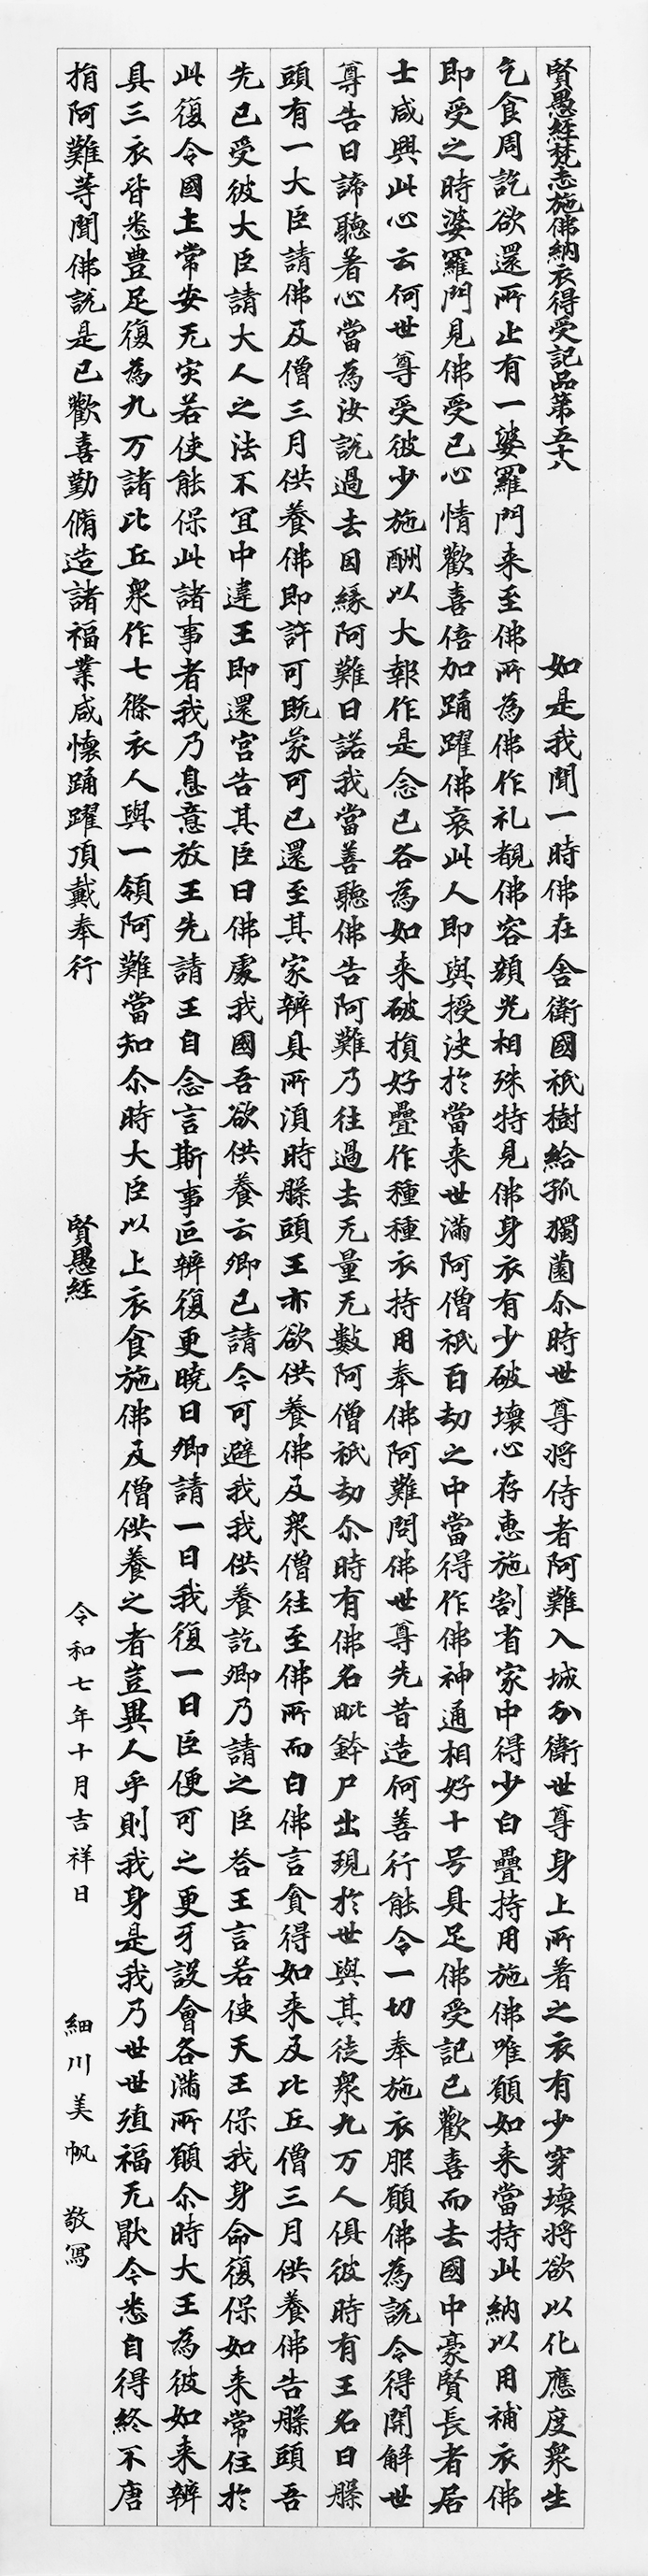 賢愚経梵志施佛納衣得受記品第五十八　如是我聞一時佛在舎衛國祇樹給孤獨薗尒時世尊将侍者阿難入城分衛世尊身上所著之衣有少穿壊将欲以化應度衆生
乞食周訖欲還所止有一婆羅門来至佛所為佛作礼覩佛容顔光相殊特見佛身衣有少破壊心存恵施割省家中得少白疊持用施佛唯願如来當持此納以用補衣佛
即受之時婆羅門見佛受已心情歡喜倍加踊躍佛哀此人即與授決於當来世滿阿僧祇百劫之中當得作佛神通相好十号具足佛受記已歡喜而去國中豪賢長者居
士咸興此心云何世尊受彼少施酬以大報作是念已各為如来破損好疊作種種衣持用奉佛阿難問佛世尊先昔造何善行能令一切奉施衣服願佛為説令得開解世
尊告曰諦聽著心當為汝説過去因縁阿難曰諾我當善聽佛告阿難乃往過去无量无數阿僧祇劫尒時有佛名毗鉢尸出現於世與其徒衆九万人俱彼時有王名曰槃
頭有一大臣請佛及僧三月供養佛即許可既蒙可已還至其家辦具所湏時槃頭王亦欲供養佛及衆僧往至佛所而白佛言貪得如来及比丘僧三月供養佛告槃頭吾
先已受彼大臣請大人之法不冝中違王即還宮告其臣曰佛處我國吾欲供養云卿已請今可避我我供養訖卿乃請之臣荅王言若使天王保我身命復保如来常住於
此復令國土常安无灾若使能保此諸事者我乃息意放王先請王自念言斯事叵辦復更曉曰卿請一日我復一日臣便可之更牙設會各滿所願尒時大王為彼如来辦
具三衣皆悉豊足復為九万諸比丘衆作七條衣人與一領阿難當知尒時大臣以上衣食施佛及僧供養之者豈異人乎則我身是我乃世世殖福无猒今悉自得終不唐
捐阿難等聞佛説是已歡喜勤脩造諸福業咸懐踊躍頂戴奉行　賢愚経　令和七年十月吉祥日　細川美帆　敬寫